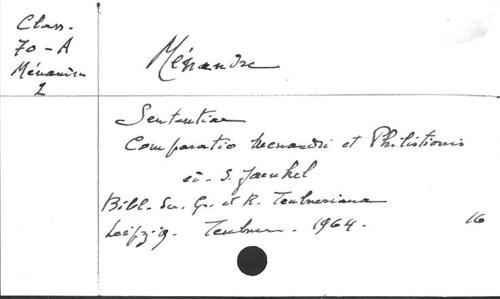 Class.
70-A
Ménandre
2
Ménandre
Sententiae
Comparatio Menandri et Philistionis
ed. S. Jaekel
Bibl. Scr. Gr. et R. Teubneriana
Leipzig. Teubner. 1964. 16